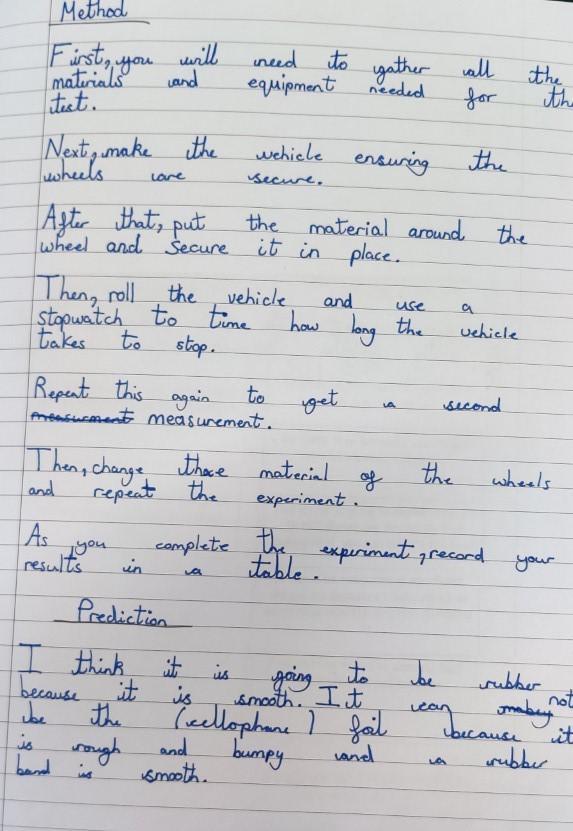 Method
First, you will need to gather all the
materials and equipment needed for th
test.
Next, make the vehicle ensuring the
wheels are secure.
After that, put the material around the
wheel and secure it in place.
Then, roll the vehicle and use a
stopwatch to time how long the vehicle
takes to stop.
Repeat this again to get a second
measurment measurement.
Then, change the material of the wheels
and repeat the experiment.
As you complete the experiment, record your
results in a table.
Prediction
I think it is going to be rubber
because it is smooth. It can mabey not
be the (cellophane) foil because it
is rough and bumpy and a rubber
band is smooth.